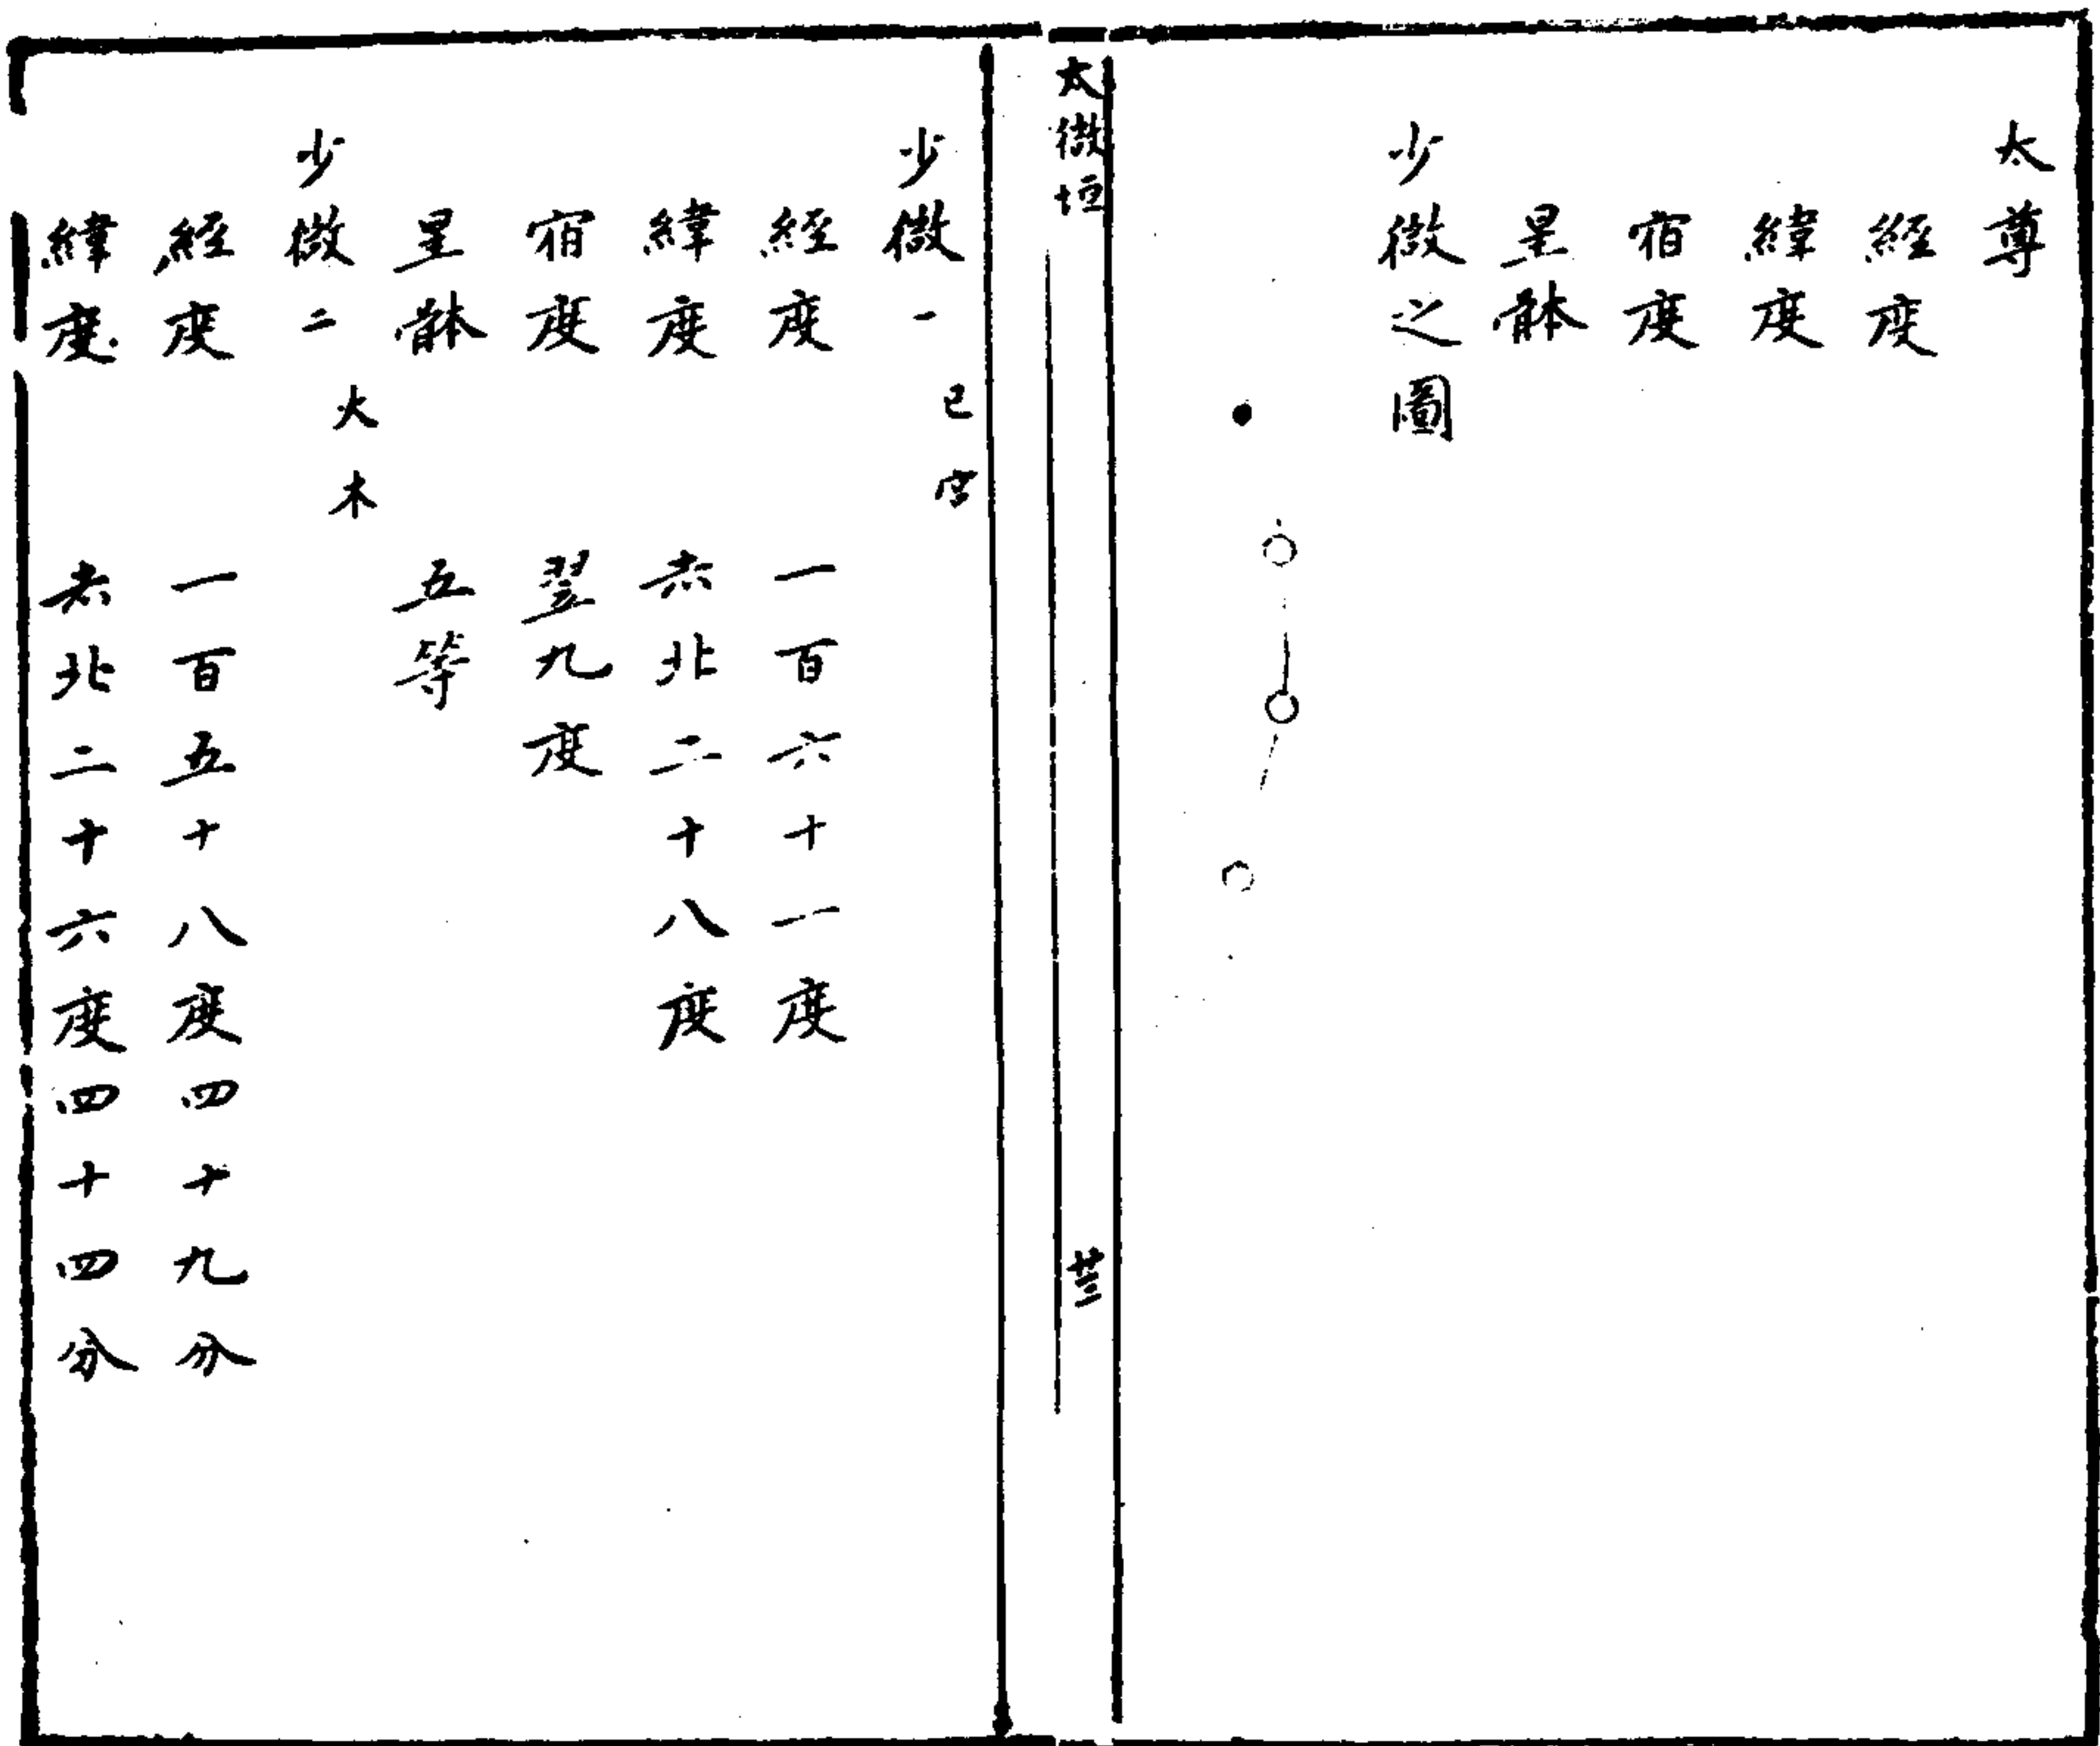 太尊
經度
緯度
宿度
星躰
少微之圖
太微垣 卅三
少微一 巳宮
經度 一百六十一度
緯度 赤北二十八度
宿度 翌九度
星躰 五等
少微二 火木
經度 一百五十八度四十九分
緯度 赤北二十六度四十四分